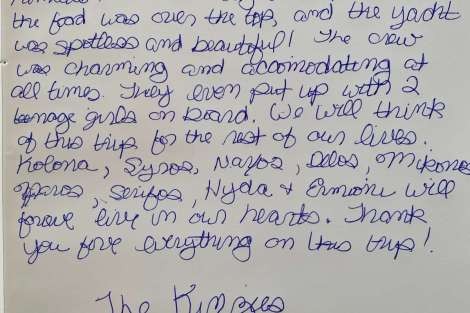 the food was over the top, and the yacht
was spotless and beautiful! The crew
was charming and accomodating at
all times. They even put up with 2
teenage girls on board. We will think
of this trip for the rest of our lives.
Kolona, Syros, Naxos, Delos, Mikonos
Paros, Serifos, Hydra & Ermioni will
forever live in our hearts. Thank
you for everything on this trip!
The